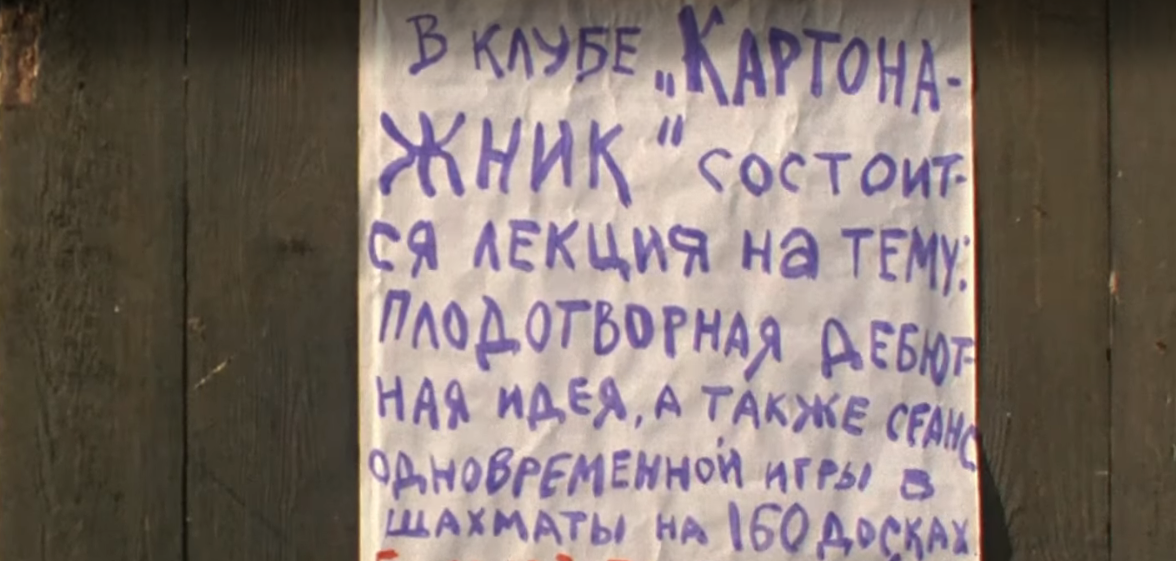 В КЛУБЕ „КАРТОНА-
ЖНИК" СОСТОИТ-
СЯ ЛЕКЦИЯ НА ТЕМУ:
ПЛОДОТВОРНАЯ ДЕБЮТ-
НАЯ ИДЕЯ, А ТАКЖЕ СЕАНС
ОДНОВРЕМЕННОЙ ИГРЫ В
ШАХМАТЫ НА 160 ДОСКАХ